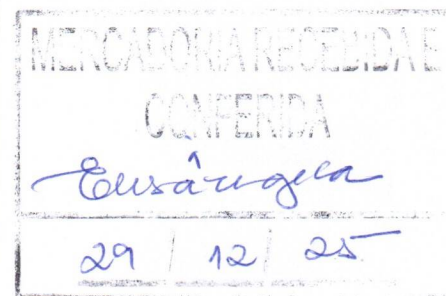 MERCADORIA RECEBIDA E
CONFERIDA
Elisângela
29 / 12 / 25